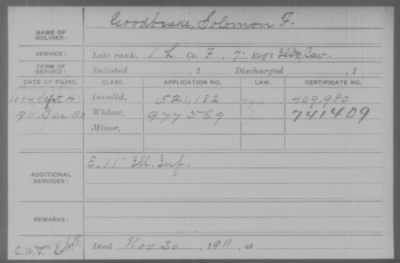 NAME OF SOLDIER: Goodbrake, Solomon F.
SERVICE: Late rank, 1 L Co. F, 7 Reg't Cav.
TERM OF SERVICE: Enlisted , 1 Discharged , 1
DATE OF FILING. CLASS. APPLICATION NO. LAW. CERTIFICATE NO.
1884 Sept. Invalid, 521,182 409,982
1911 Dec Widow, 977569 741409
Minor,
ADDITIONAL SERVICES: E. 11" Ill. Inf.
REMARKS:
Died Nov 30, 1911, at